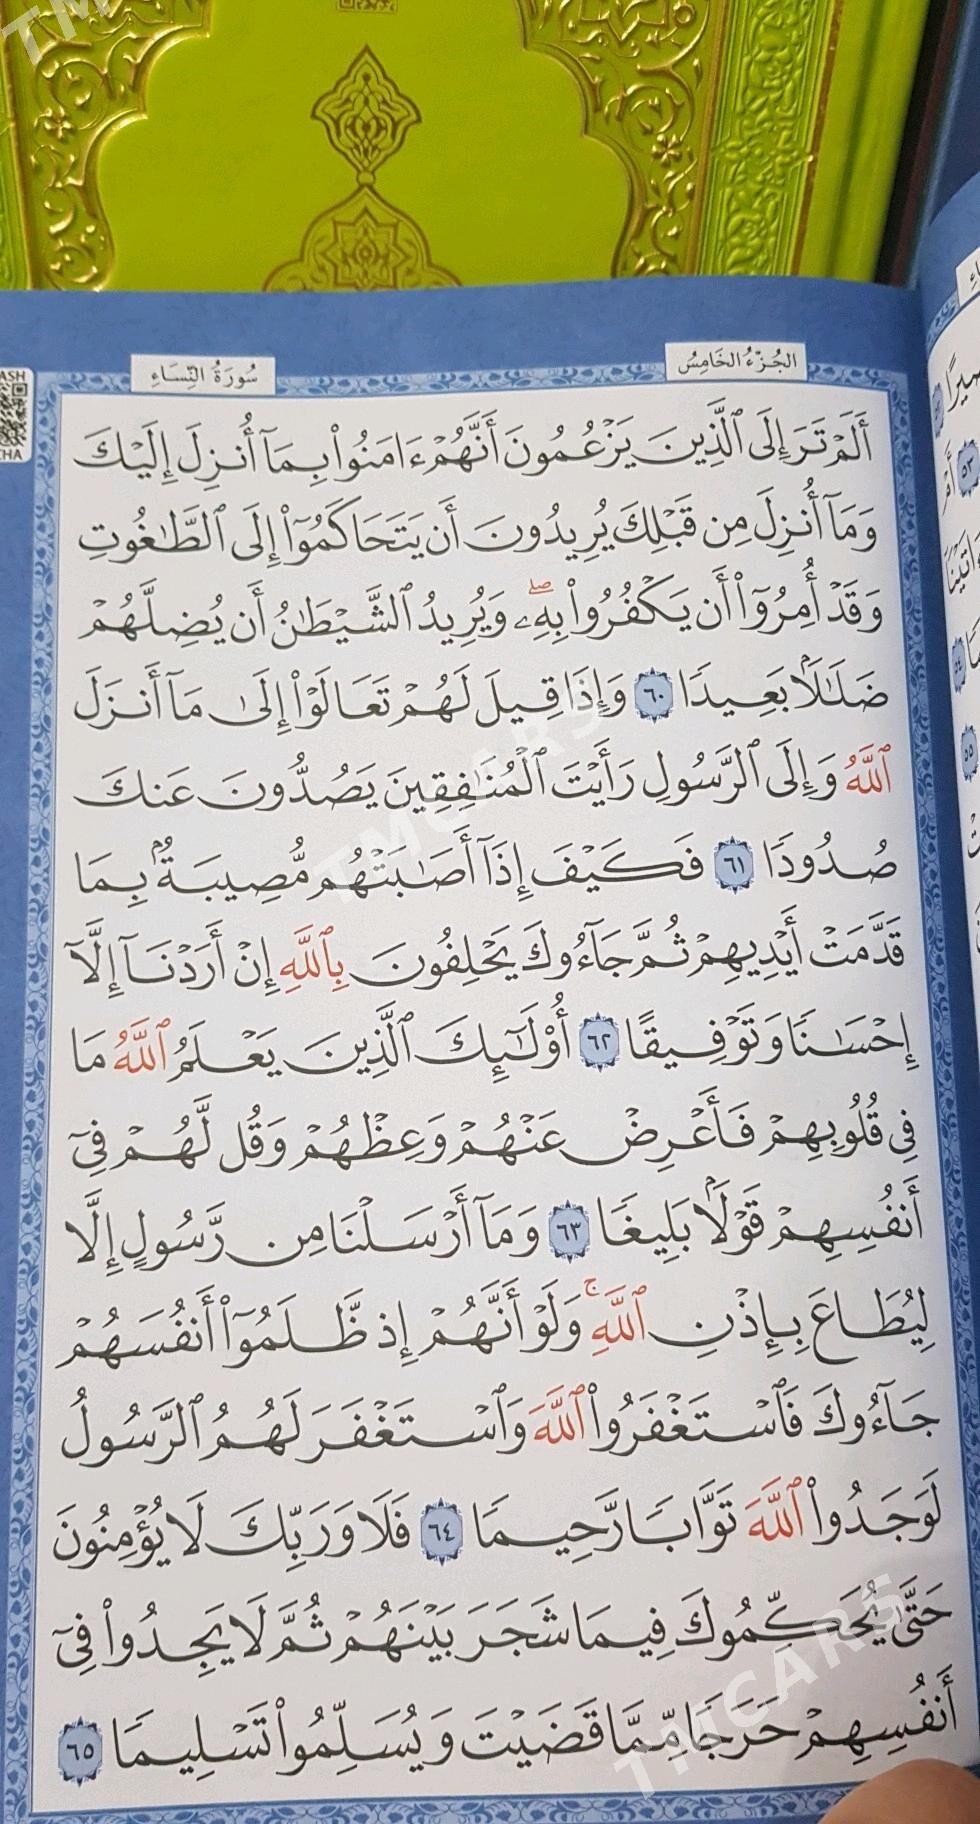 TM
ASH
CHA
سُورَةُ النِّسَاءِ
الجُزْءُ الخَامِسُ
أَلَمْ تَرَ إِلَى ٱلَّذِينَ يَزْعُمُونَ أَنَّهُمْ ءَامَنُوا۟ بِمَآ أُنزِلَ إِلَيْكَ
وَمَآ أُنزِلَ مِن قَبْلِكَ يُرِيدُونَ أَن يَتَحَاكَمُوٓا۟ إِلَى ٱلطَّـٰغُوتِ
وَقَدْ أُمِرُوٓا۟ أَن يَكْفُرُوا۟ بِهِۦۖ وَيُرِيدُ ٱلشَّيْطَـٰنُ أَن يُضِلَّهُمْ
ضَلَـٰلَۢا بَعِيدًا ٦٠ وَإِذَا قِيلَ لَهُمْ تَعَالَوْا۟ إِلَىٰ مَآ أَنزَلَ
ٱللَّهُ وَإِلَى ٱلرَّسُولِ رَأَيْتَ ٱلْمُنَـٰفِقِينَ يَصُدُّونَ عَنكَ
صُدُودًا ٦١ فَكَيْفَ إِذَآ أَصَـٰبَتْهُم مُّصِيبَةٌۢ بِمَا
قَدَّمَتْ أَيْدِيهِمْ ثُمَّ جَآءُوكَ يَحْلِفُونَ بِٱللَّهِ إِنْ أَرَدْنَآ إِلَّآ
إِحْسَـٰنًا وَتَوْفِيقًا ٦٢ أُو۟لَـٰٓئِكَ ٱلَّذِينَ يَعْلَمُ ٱللَّهُ مَا
فِى قُلُوبِهِمْ فَأَعْرِضْ عَنْهُمْ وَعِظْهُمْ وَقُل لَّهُمْ فِىٓ
أَنفُسِهِمْ قَوْلَۢا بَلِيغًا ٦٣ وَمَآ أَرْسَلْنَا مِن رَّسُولٍ إِلَّا
لِيُطَاعَ بِإِذْنِ ٱللَّهِۚ وَلَوْ أَنَّهُمْ إِذ ظَّلَمُوٓا۟ أَنفُسَهُمْ
جَآءُوكَ فَٱسْتَغْفَرُوا۟ ٱللَّهَ وَٱسْتَغْفَرَ لَهُمُ ٱلرَّسُولُ
لَوَجَدُوا۟ ٱللَّهَ تَوَّابًا رَّحِيمًا ٦٤ فَلَا وَرَبِّكَ لَا يُؤْمِنُونَ
حَتَّىٰ يُحَكِّمُوكَ فِيمَا شَجَرَ بَيْنَهُمْ ثُمَّ لَا يَجِدُوا۟ فِىٓ
أَنفُسِهِمْ حَرَجًا مِّمَّا قَضَيْتَ وَيُسَلِّمُوا۟ تَسْلِيمًا ٦٥
TMCARS
TMCARS